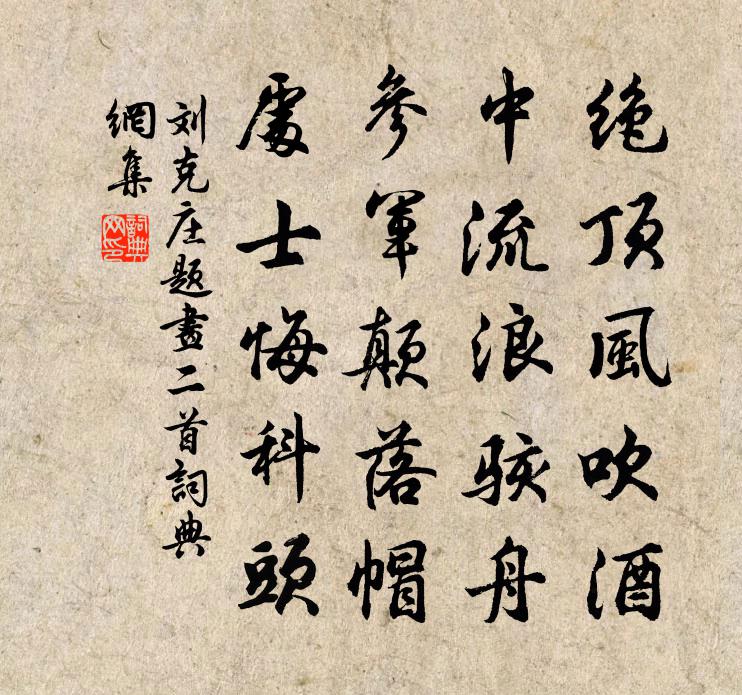 绝顶風吹酒
中流浪駭舟
參軍顛落帽
處士悔科頭
刘克庄题畫二首詞典
網集
詞典
网印